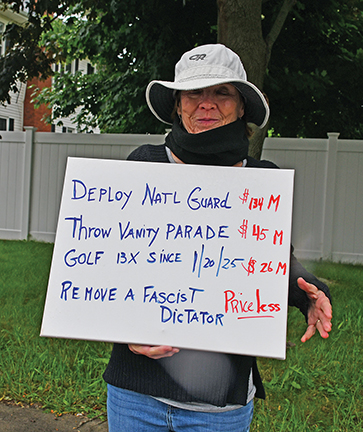 OR
DEPLOY NAT'L GUARD $134 M
THROW VANITY PARADE $45 M
GOLF 13X SINCE 1/20/25 $26 M
REMOVE A FASCIST Priceless
DICTATOR